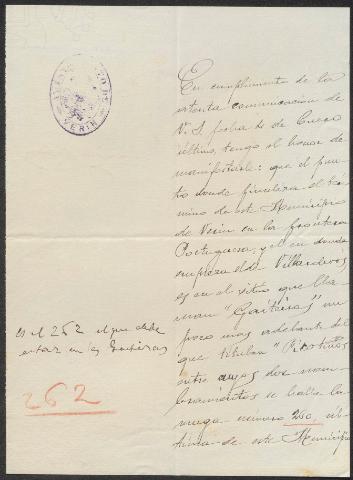 VERIN
En cumplimiento de la
atenta comunicacion de
V. S. fecha de Enero
último, tengo el honor de
manifestarle: que el pun-
to donde finaliza el tér-
mino de este Municipio
de Verin en la frontera
Portuguesa, y el en donde
empieza el de Villardevós
es en el sitio que lla-
man "Gaiteiras" un
poco mas adelante del
que titulan "Picotiños"
entre cuyos dos nom-
bramientos se halla la
marga número 260, úl-
tima de este Municipio
es el 262 el que debe
estar en as Gaiteiras
262